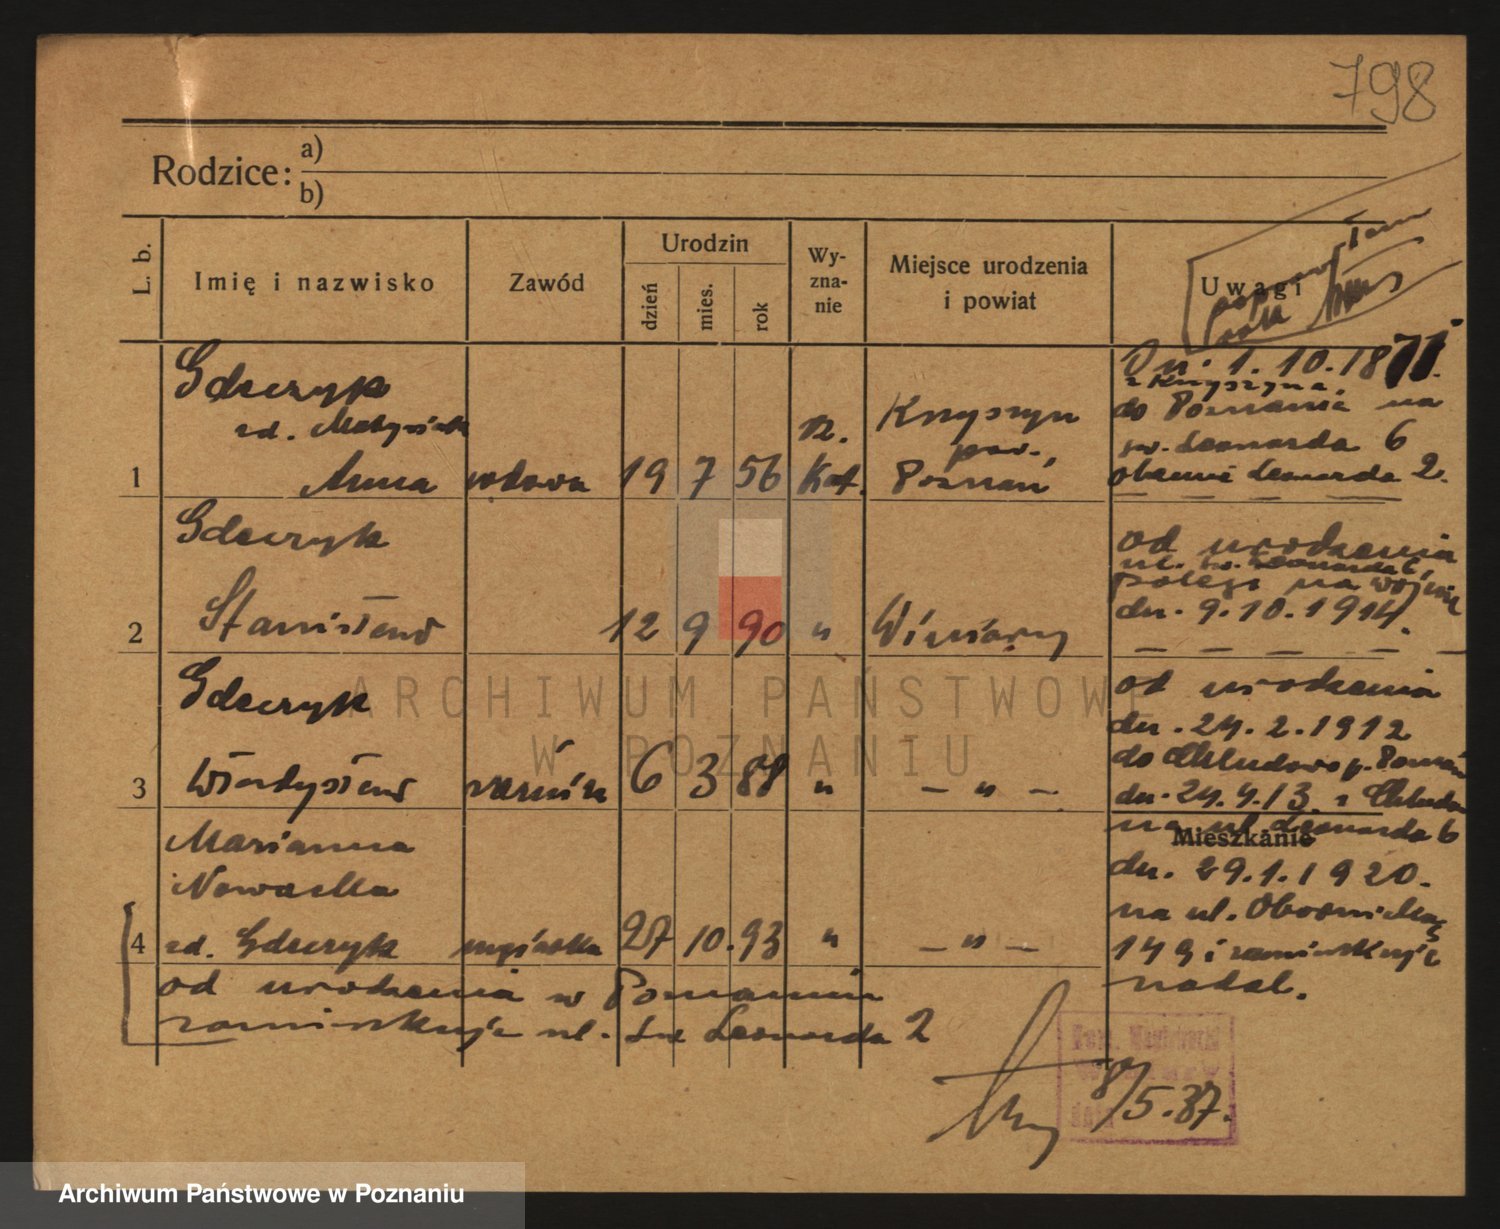 798
Rodzice:
a)
b)
L. b.
Imię i nazwisko
Zawód
Urodzin
dzień
mies.
rok
Wy-
zna-
nie
Miejsce urodzenia
i powiat
Uwagi
Gdeczyk
zd. Matysiak
1 Anna wdowa 19 7 56 rz. Kat. Knyszyn pow. Poznań
Dn. 1.10.1871.
z Knyszyna,
do Poznania na
św. Leonarda 6
obecnie Leonarda 2.
Gdeczyk
2 Stanisław 12 9 90 " Winiary
od urodzenia
ul. św. Leonarda 6,
poległ na wojnie
dn. 9.10.1914.
Gdeczyk
3 Władysław 6 3 88 " — " —
od urodzenia
dn. 24.2.1912
do Chludowo p. Poznań
dn. 24.4.13 z Chludowa
na ul. Leonarda 6
Mieszkanie
dn. 29.1.1920.
na ul. Obornicką
149 i zamieszkuje
nadal.
Marianna
Nowacka
4 zd. Gdeczyk mężatka 27 10. 93 " — " —
od urodzenia w Poznaniu
zamieszkuje ul. Św. Leonarda 2
8/5.37.
ARCHIWUM PAŃSTWOWE
W POZNANIU
Archiwum Państwowe w Poznaniu